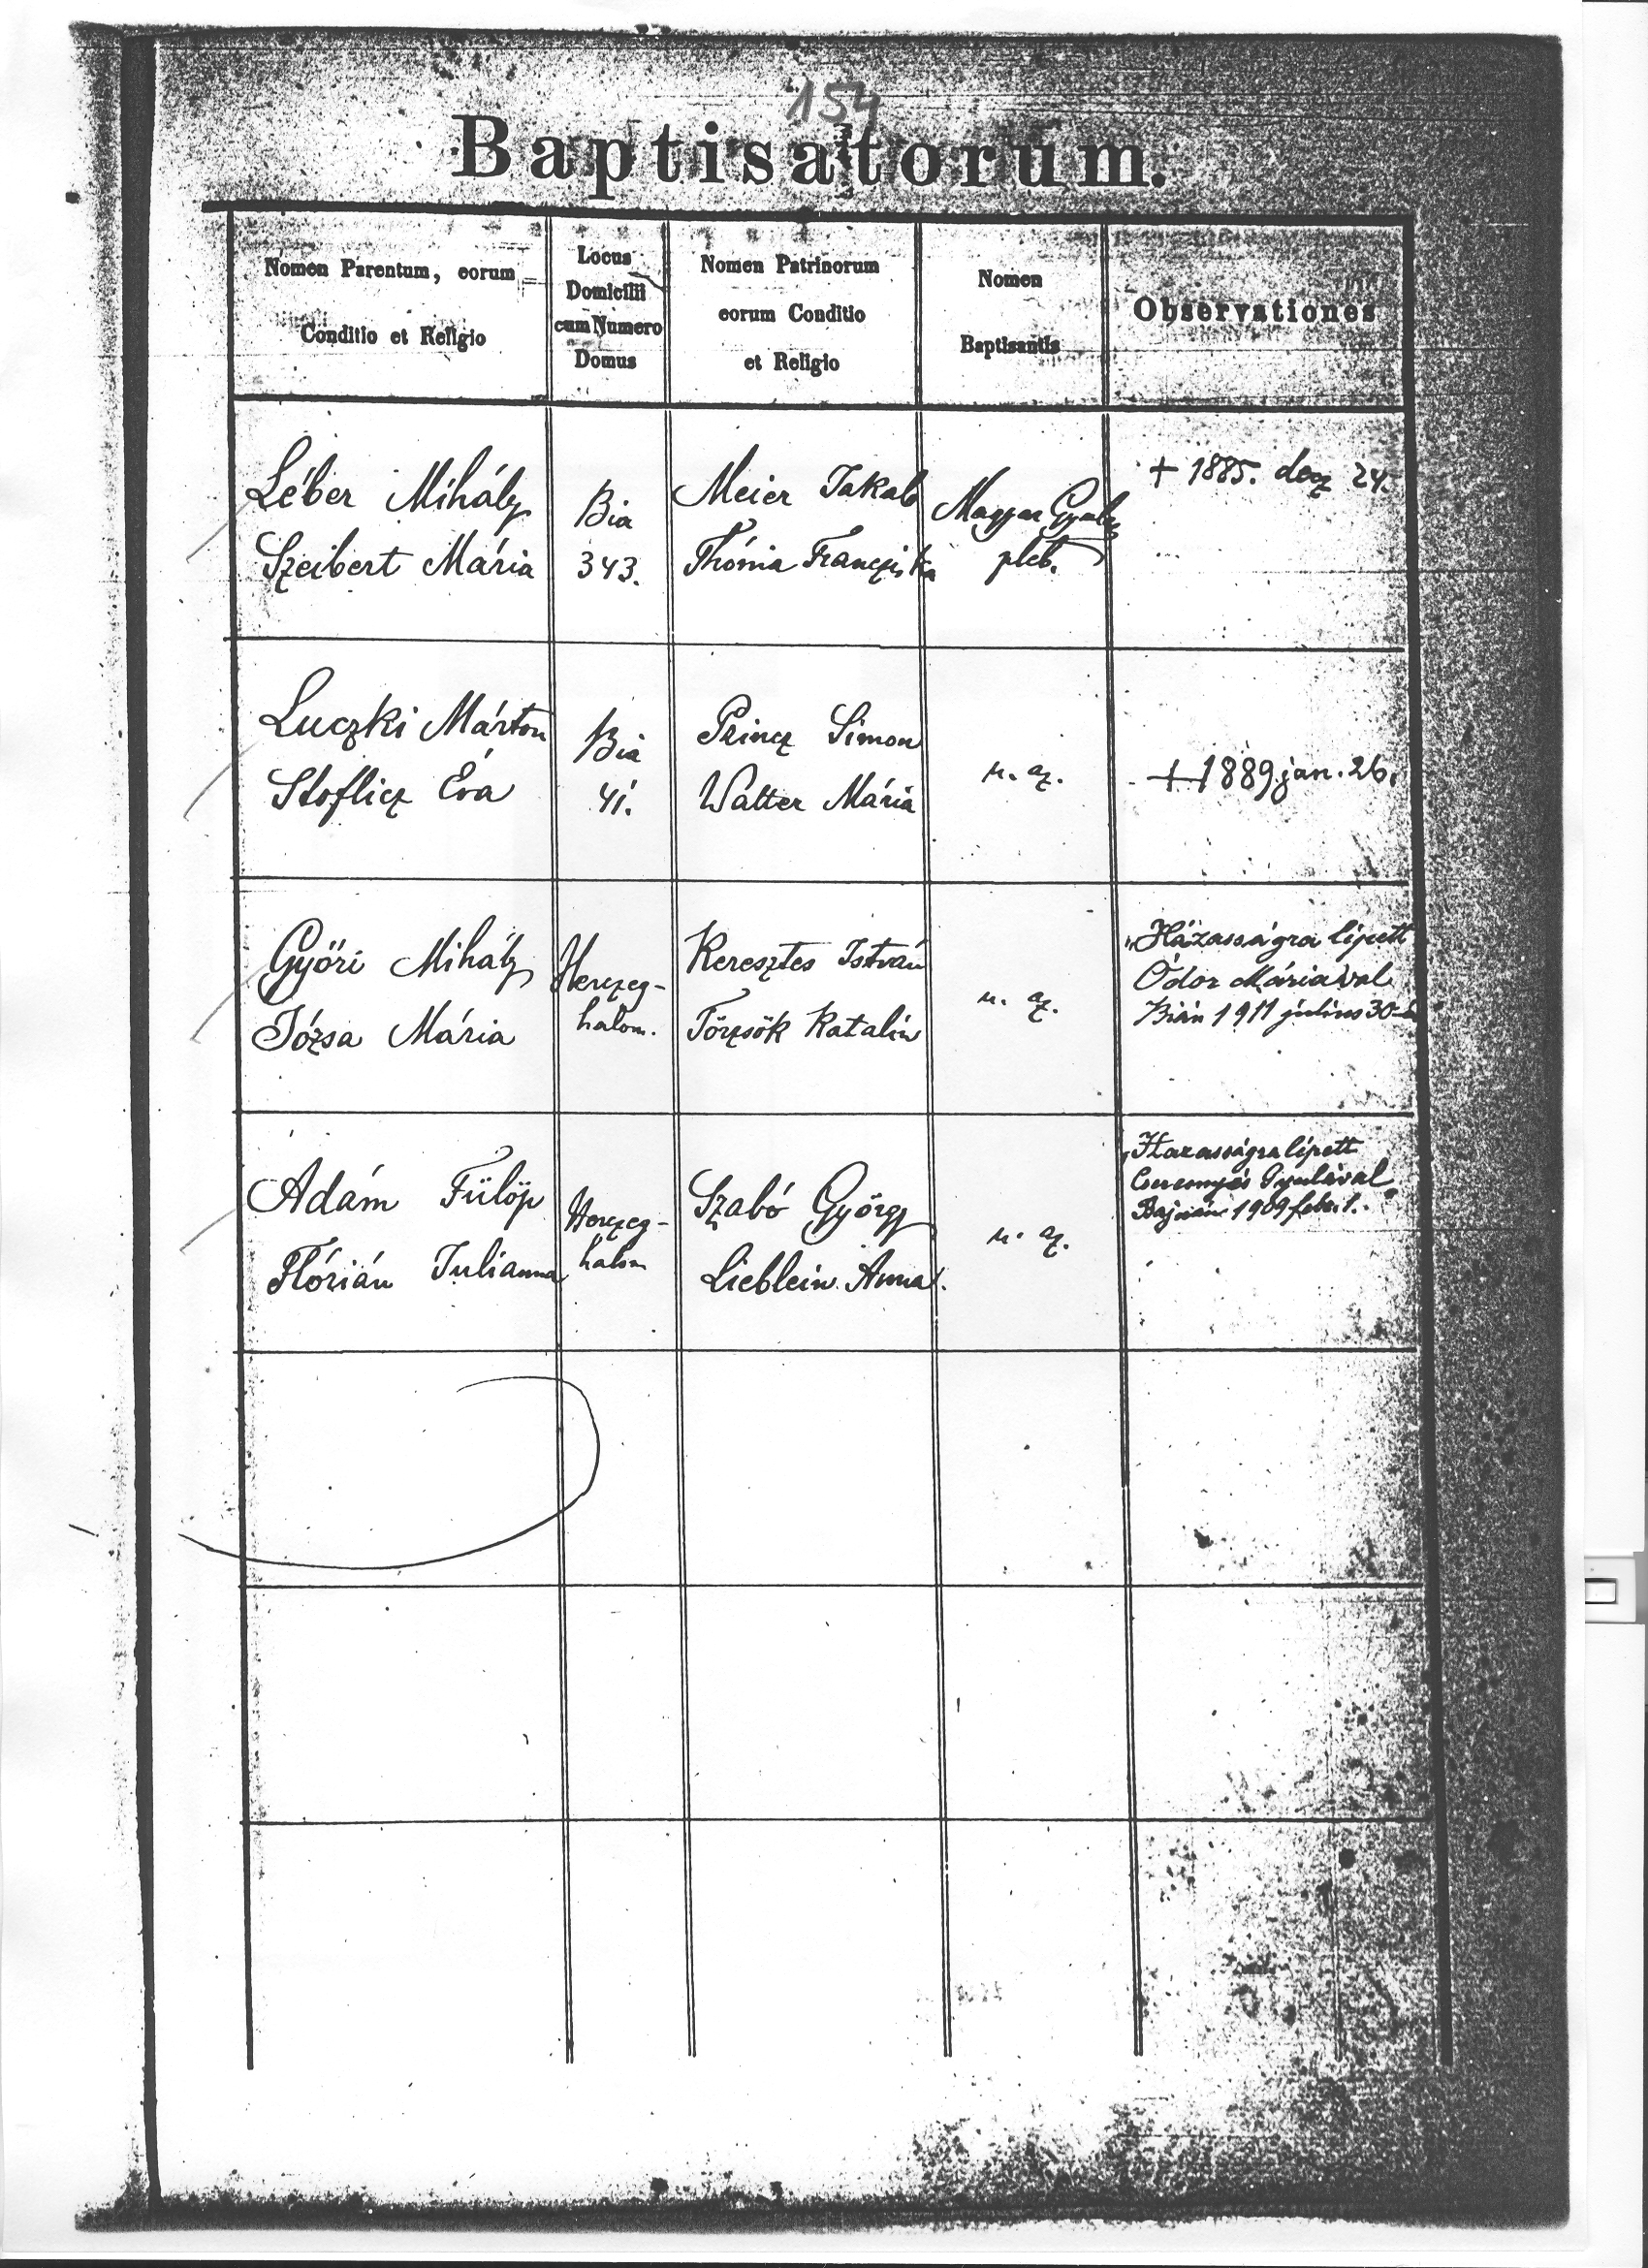 154
Baptisatorum.
Nomen Parentum, eorum
Conditio et Religio
Locus
Domicilii
cum Numero
Domus
Nomen Patrinorum
eorum Conditio
et Religio
Nomen
Baptisantis
Observationes
Léber Mihály
Szeibert Mária
Bia
343.
Meier Jakab
Thóma Francziska
Magyar Gyula
pleb.
+ 1885. dez 24.
Luczki Márton
Stoflicz Éva
Bia
41.
Princz Simon
Walter Mária
u. az.
+ 1889 jan. 26.
Győri Mihály
Józsa Mária
Herczeg-
halom.
Keresztes István
Törzsök Katalin
u. az.
Házasságra lépett
Ódor Máriával
Bián 1911 július 30-á
Ádám Fülöp
Flórián Julianna
Herczeg-
halom
Szabó György
Lieblein Anna.
u. az.
Házasságra lépett
Gyulával
1909 febr. 1.